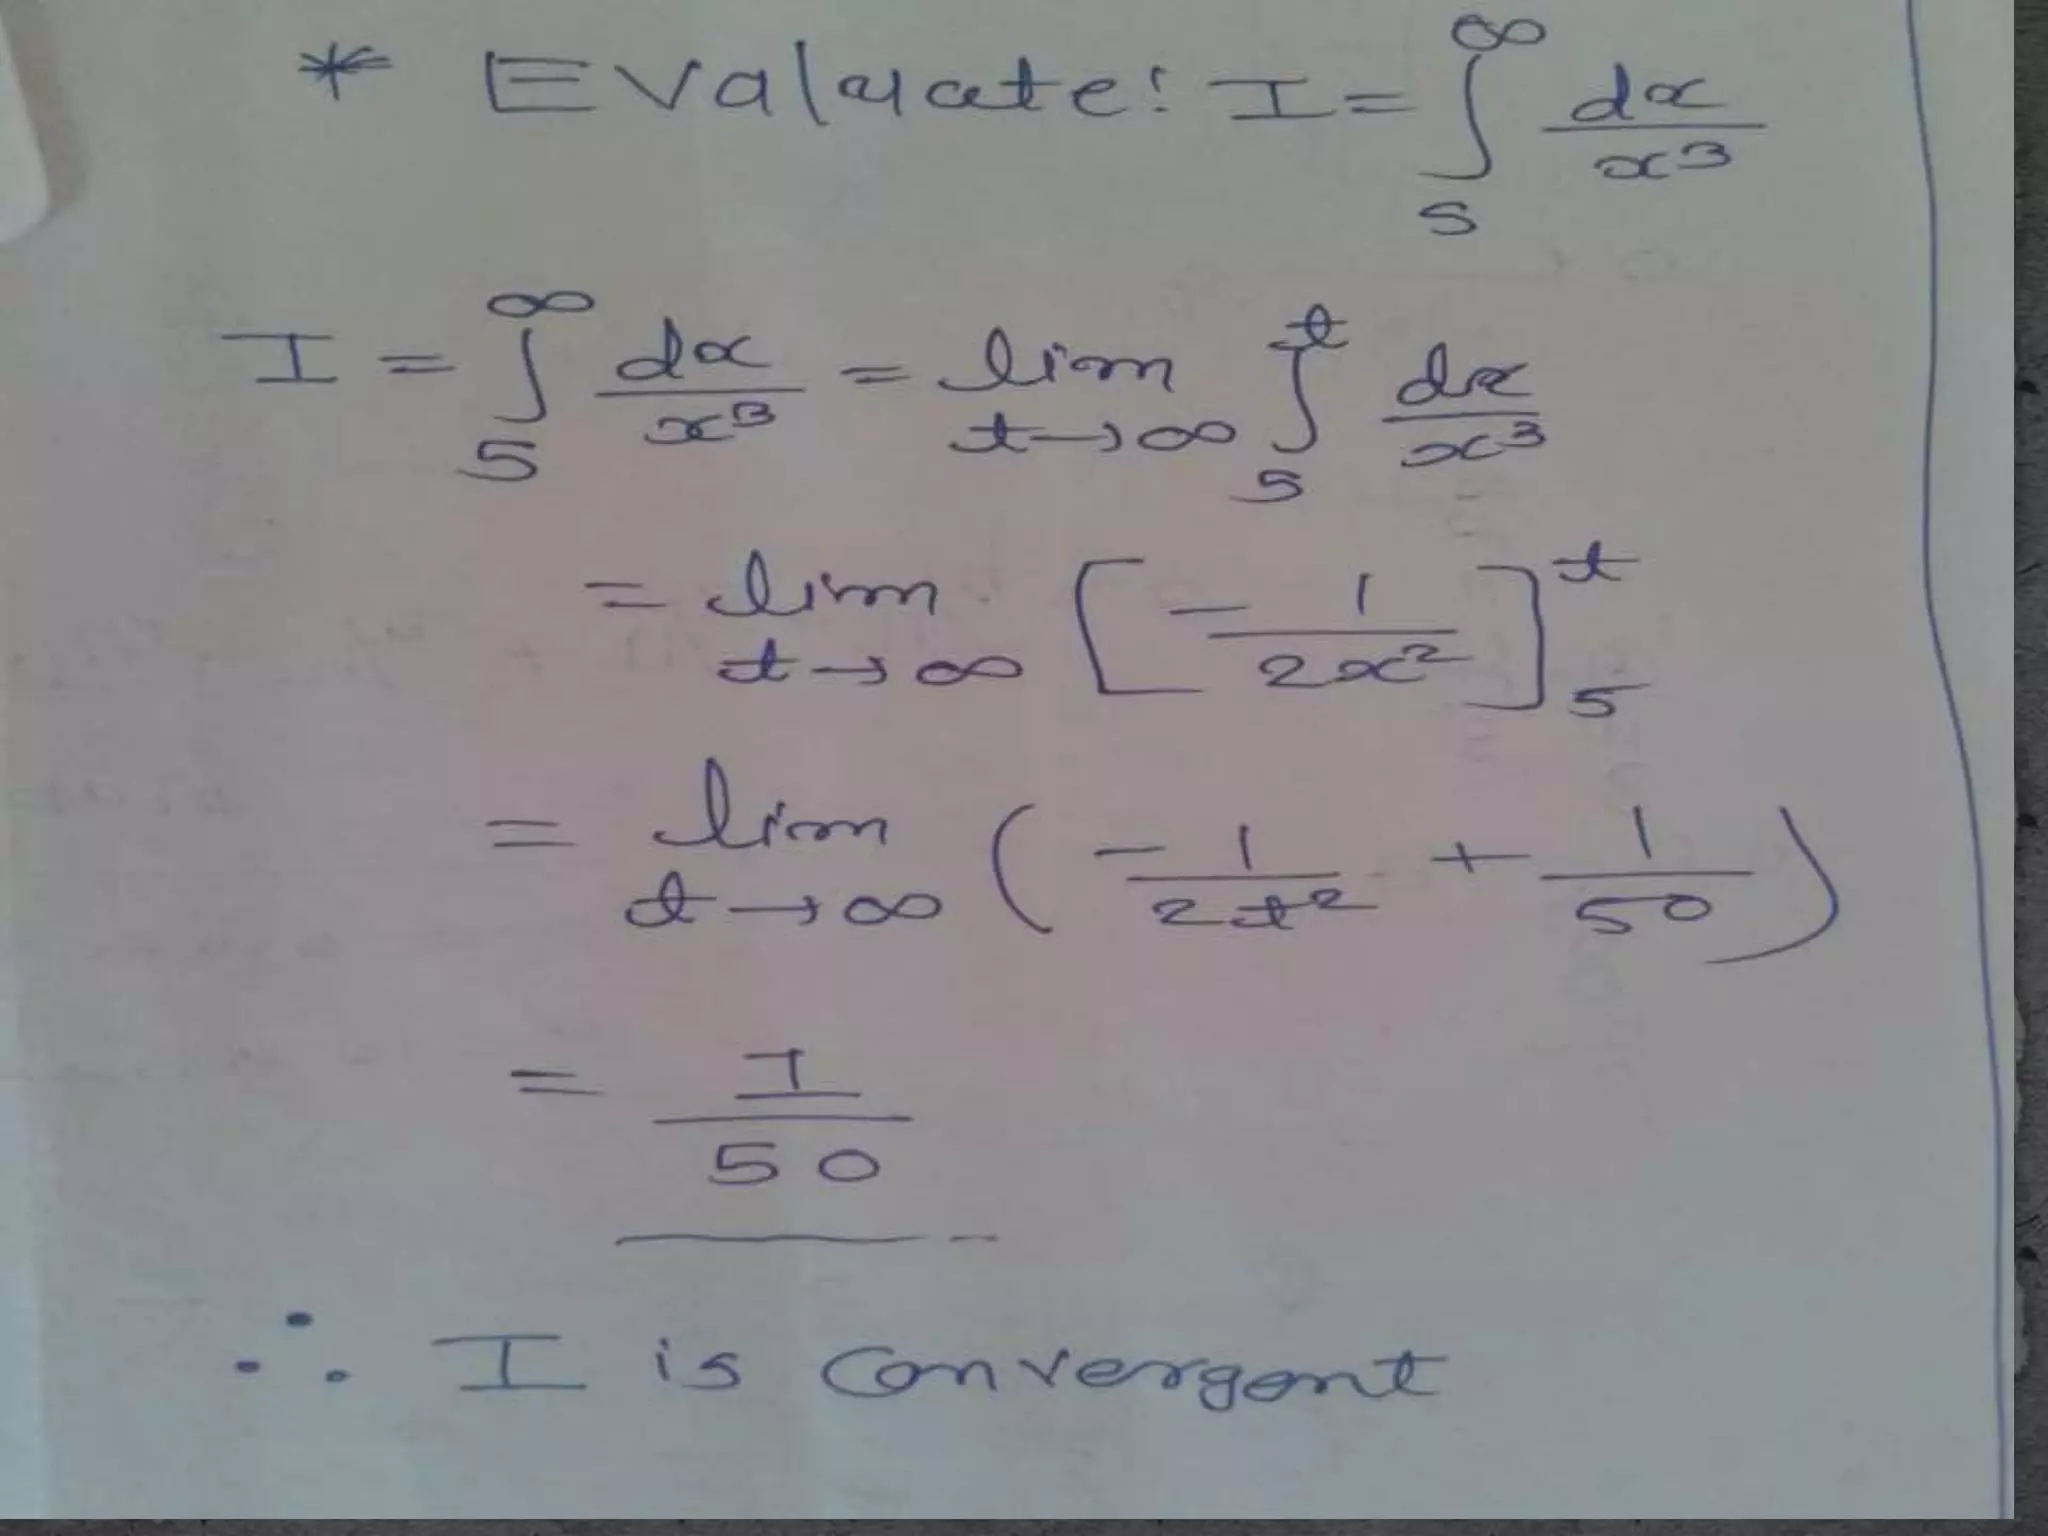 * Evaluate: I = ∫₅^∞ dx/x³
I = ∫₅^∞ dx/x³ = lim t→∞ ∫₅^t dx/x³
= lim t→∞ [-1/2x²]₅^t
= lim t→∞ (-1/2t² + 1/50)
= 1/50
∴ I is convergent